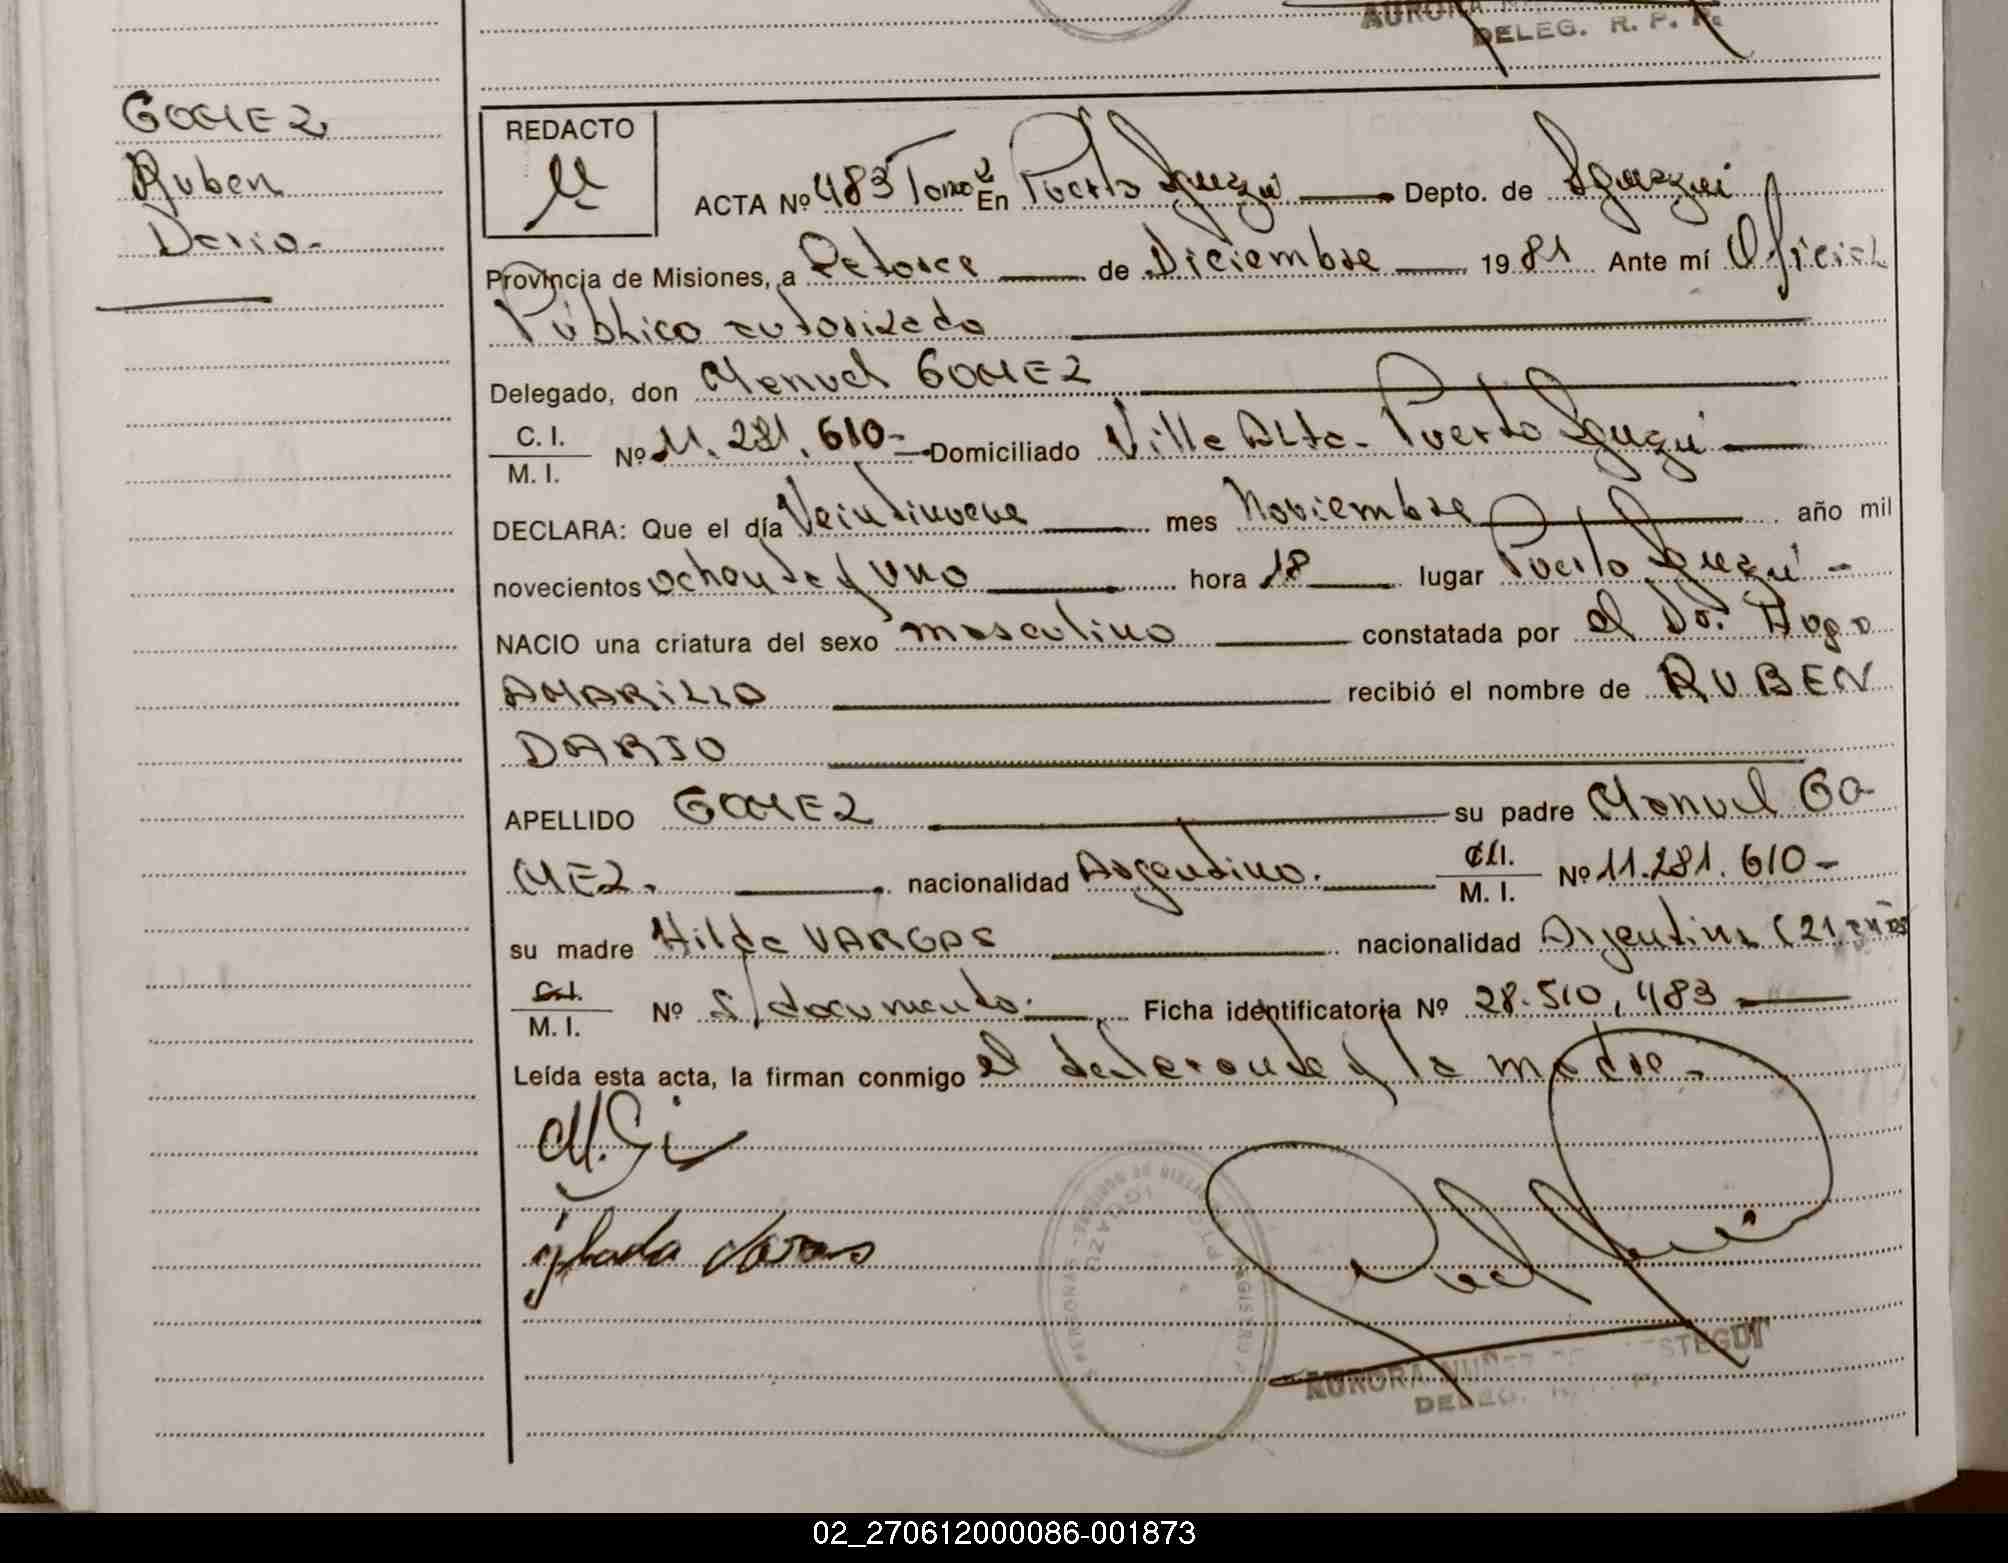 AURORA
DELEG. R. P. P.
GOMEZ
Ruben
Dario-
REDACTO
ACTA Nº 483 Tomo 2 En Puerto Iguazú Depto. de Iguazú
Provincia de Misiones, a Catorce de Diciembre 1981 Ante mí Oficial
Público autorizado
Delegado, don Manuel GOMEZ
C. I.
M. I.
Nº 11.281.610- Domiciliado Villa Alta- Puerto Iguazú
DECLARA: Que el día Veintinueve mes Noviembre año mil
novecientos ochenta y uno hora 18 lugar Puerto Iguazú-
NACIO una criatura del sexo masculino constatada por el Dr. Hugo
AMARILLO recibió el nombre de RUBEN
DARIO
APELLIDO GOMEZ su padre Manuel GO-
MEZ. nacionalidad Argentino. C.I.
M. I.
Nº 11.281.610-
su madre Hilda VARGAS nacionalidad Argentina (21 años
C.I.
M. I.
Nº S/documento. Ficha identificatoria Nº 28.510.483
Leída esta acta, la firman conmigo el declarante y la madre.
AURORA NUÑEZ
DELEG.
02_270612000086-001873